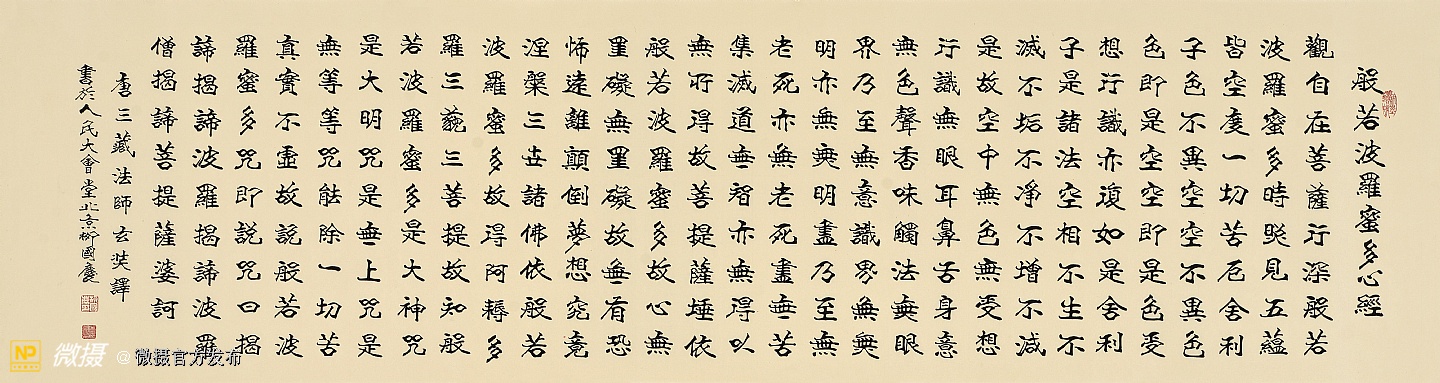 般若波羅蜜多心經
觀自在菩薩行深般若
波羅蜜多時照見五蘊
皆空度一切苦厄舍利
子色不異空空不異色
色即是空空即是色受
想行識亦復如是舍利
子是諸法空相不生不
滅不垢不淨不增不減
是故空中無色無受想
行識無眼耳鼻舌身意
無色聲香味觸法無眼
界乃至無意識界無無
明亦無無明盡乃至無
老死亦無老死盡無苦
集滅道無智亦無得以
無所得故菩提薩埵依
般若波羅蜜多故心無
罣礙無罣礙故無有恐
怖遠離顛倒夢想究竟
涅槃三世諸佛依般若
波羅蜜多故得阿耨多
羅三藐三菩提故知般
若波羅蜜多是大神咒
是大明咒是無上咒是
無等等咒能除一切苦
真實不虛故說般若波
羅蜜多咒即說咒曰揭
諦揭諦波羅揭諦波羅
僧揭諦菩提薩婆訶
唐三藏法師玄奘譯
書於人民大會堂北京柳國慶
NP 微摄 @微摄官方发布